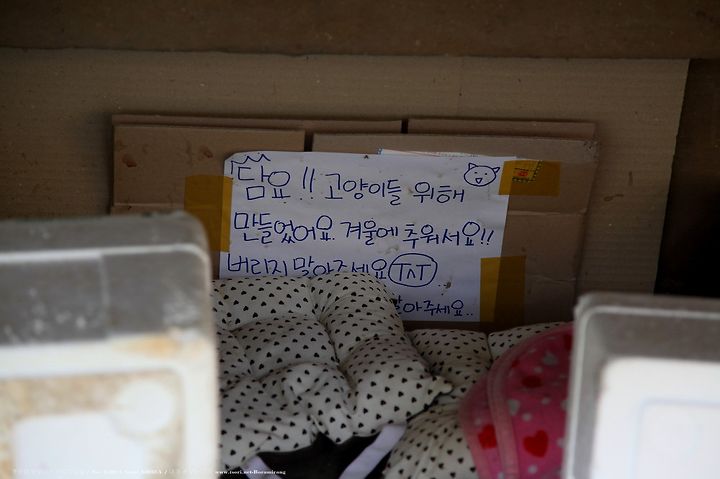 담요!! 고양이들 위해
만들었어요. 겨울에 추워서요!!
버리지 말아주세요 TㅅT
말아주세요..
www.tsori.net